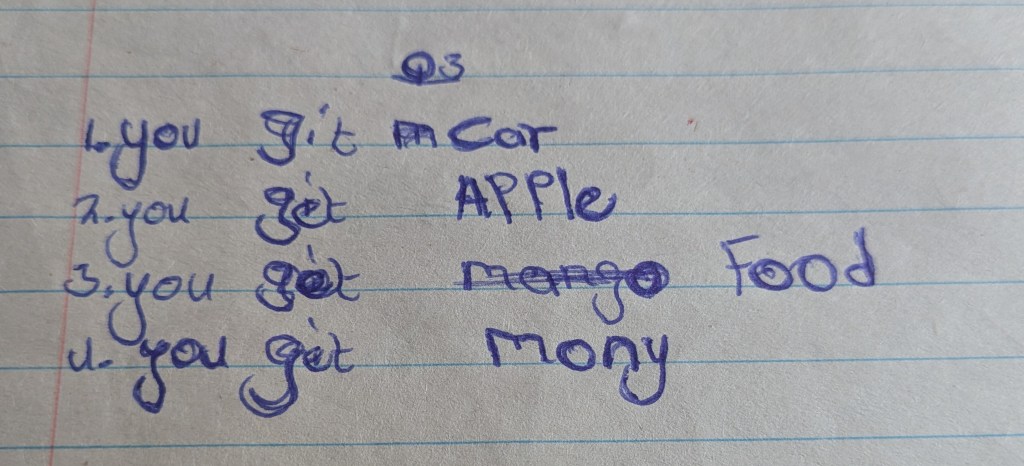 Q3
1. you git car
2. you get APPle
3. you get Food
4. you get mony